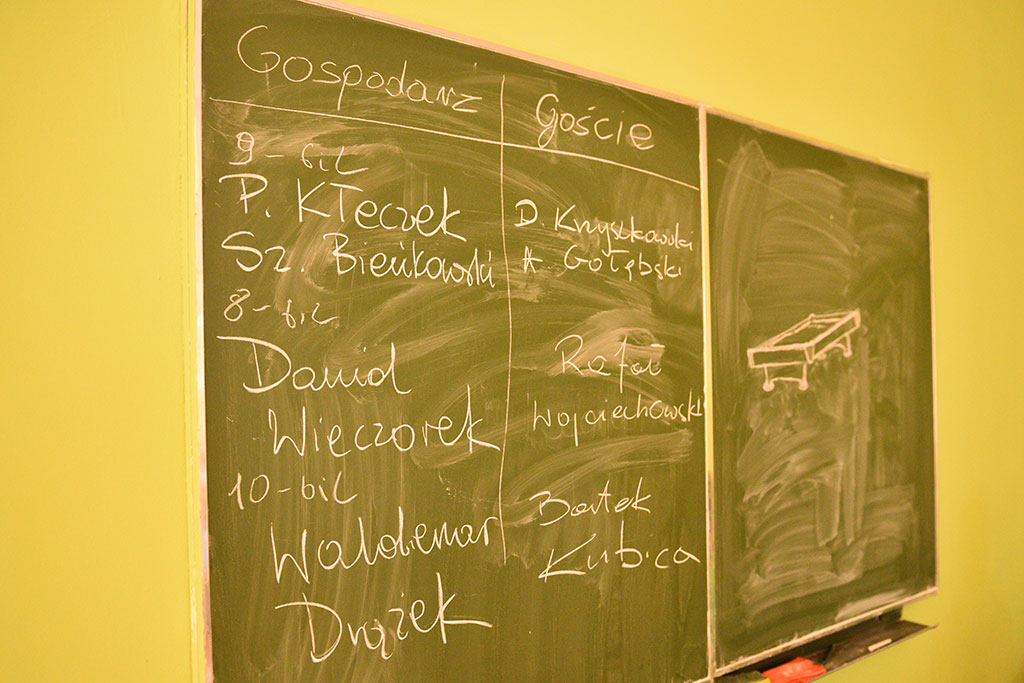 Gospodarz
Goście
9-bil
P. Kłeczek
Sz. Bieńkowski
D. Krzyszkowski
A. Gołębski
8-bil
Dawid
Wieczorek
Rafał
Wojciechowski
10-bil
Waldemar
Drążek
Bartek
Kubica